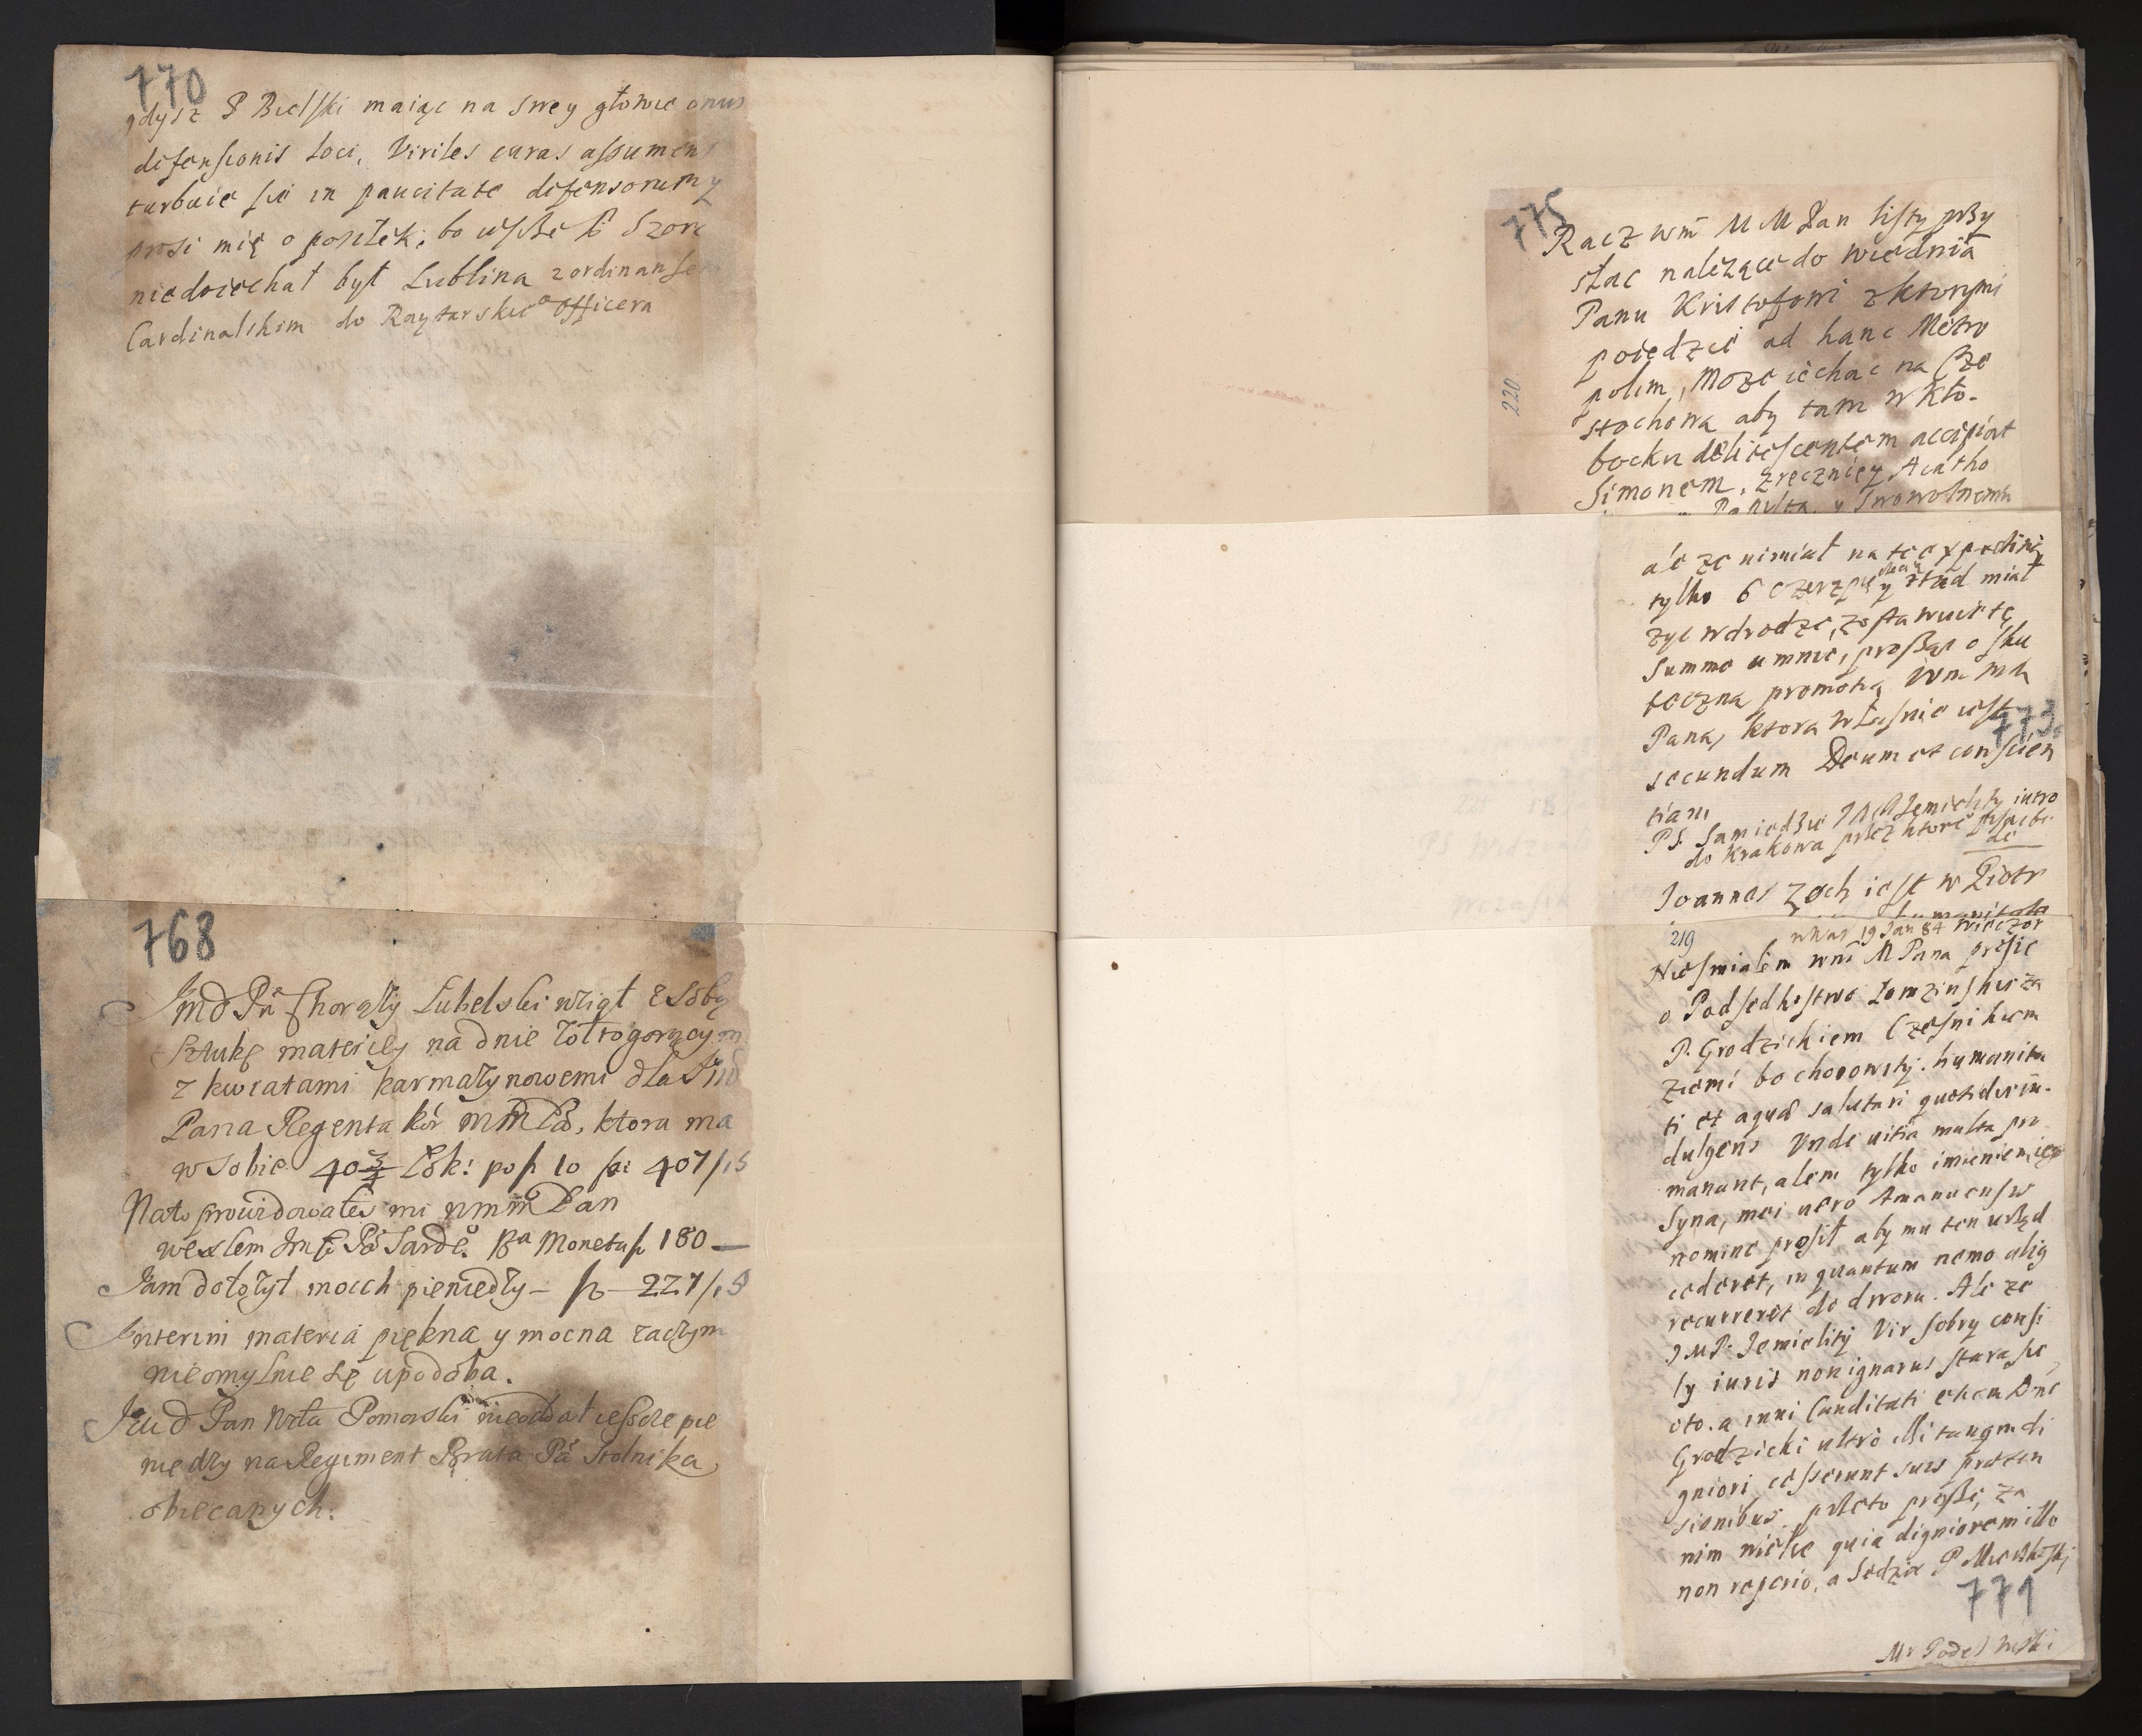 770
gdysz P Bielski maiąc na swey głowie onus
defensionis loci, Viriles curas assumens
turbuie sie in paucitate defensorum y
prosi mię o positek, bo iesze P. Szorc
niedoiechał był Lublina z ordinansem
Cardinalskim do Raytarskieo Officera
768
Jmd Pn Chorąży Lubelski wziął z sobą
sztukę materiey na dnie żółtogorącym
z kwiatami karmazynowemi dla Jmd
Pana Regenta kór mm Pa, ktora ma
w sobie 40 3/4 Łok: po 10 407/15
Nato prowidowałeś mi wmm Pan
wexlem Pa Sarde. Moneta 180 —
Jam dołożył moich pieniędzy — 227/15
Interim materia piękna y mocna zaczym
nieomylnie sę upodoba.
Jmd Pan Wda Pomorski nieoddał iescze pie
niędzy na Regiment Brata Pa Stolnika
obiecanych.
775
Racz wm M M Pan listy przy
słac należące do Wiednia
Panu Kristofowi z ktorymi
poiedzie ad hanc Metro
polim, Może iechac na Cze
stochowa aby tam w Kło-
bocku delitescentem accipiat
Simonem, zręczniey Acatho
y swowolnemu
220
ale ze nimiał na te expeditią
tylko 6 czerz y ztąd miał
zyc w drodze, zostawuie tę
Summe u mnie, prosząc o sku
teczna promotią wm mm
Pana, ktora własnie iest
773
secundum Deum et conscien
tiam
PS. Samiedzie J P Jemielity intro
do Krakowa przez ktore
Joannes Zoch iest w Piotr
219
19 Jan 84 Wieczor
Niesmiałem wm M Pana prosic
o Podsedkostwo Łomzinskie za
P. Grodzickiem Czesnikiem
ziemi bo chorowity. humanita
ti et aquæ salutari quotidie in-
dulgens Vnde vitia multa pro
manant, alem tylko imieniem iego
Syna, mei vero Amanuensis
nomine prosił aby mu ten urząd
cederet, in quantum nemo aliq
recurreret do dworu. Ale ze
J M P. Jemielity Vir sobry consi
ly iuris non ignarus stara sie
oto. a inni Canditati etiam Dne
Grodzicki ultro illi tanqm di
gniori cesserunt suis preten
sionibus, przeto prosze, za
nim wielce quia digniorem illo
non reperio, a Sedzia P
771